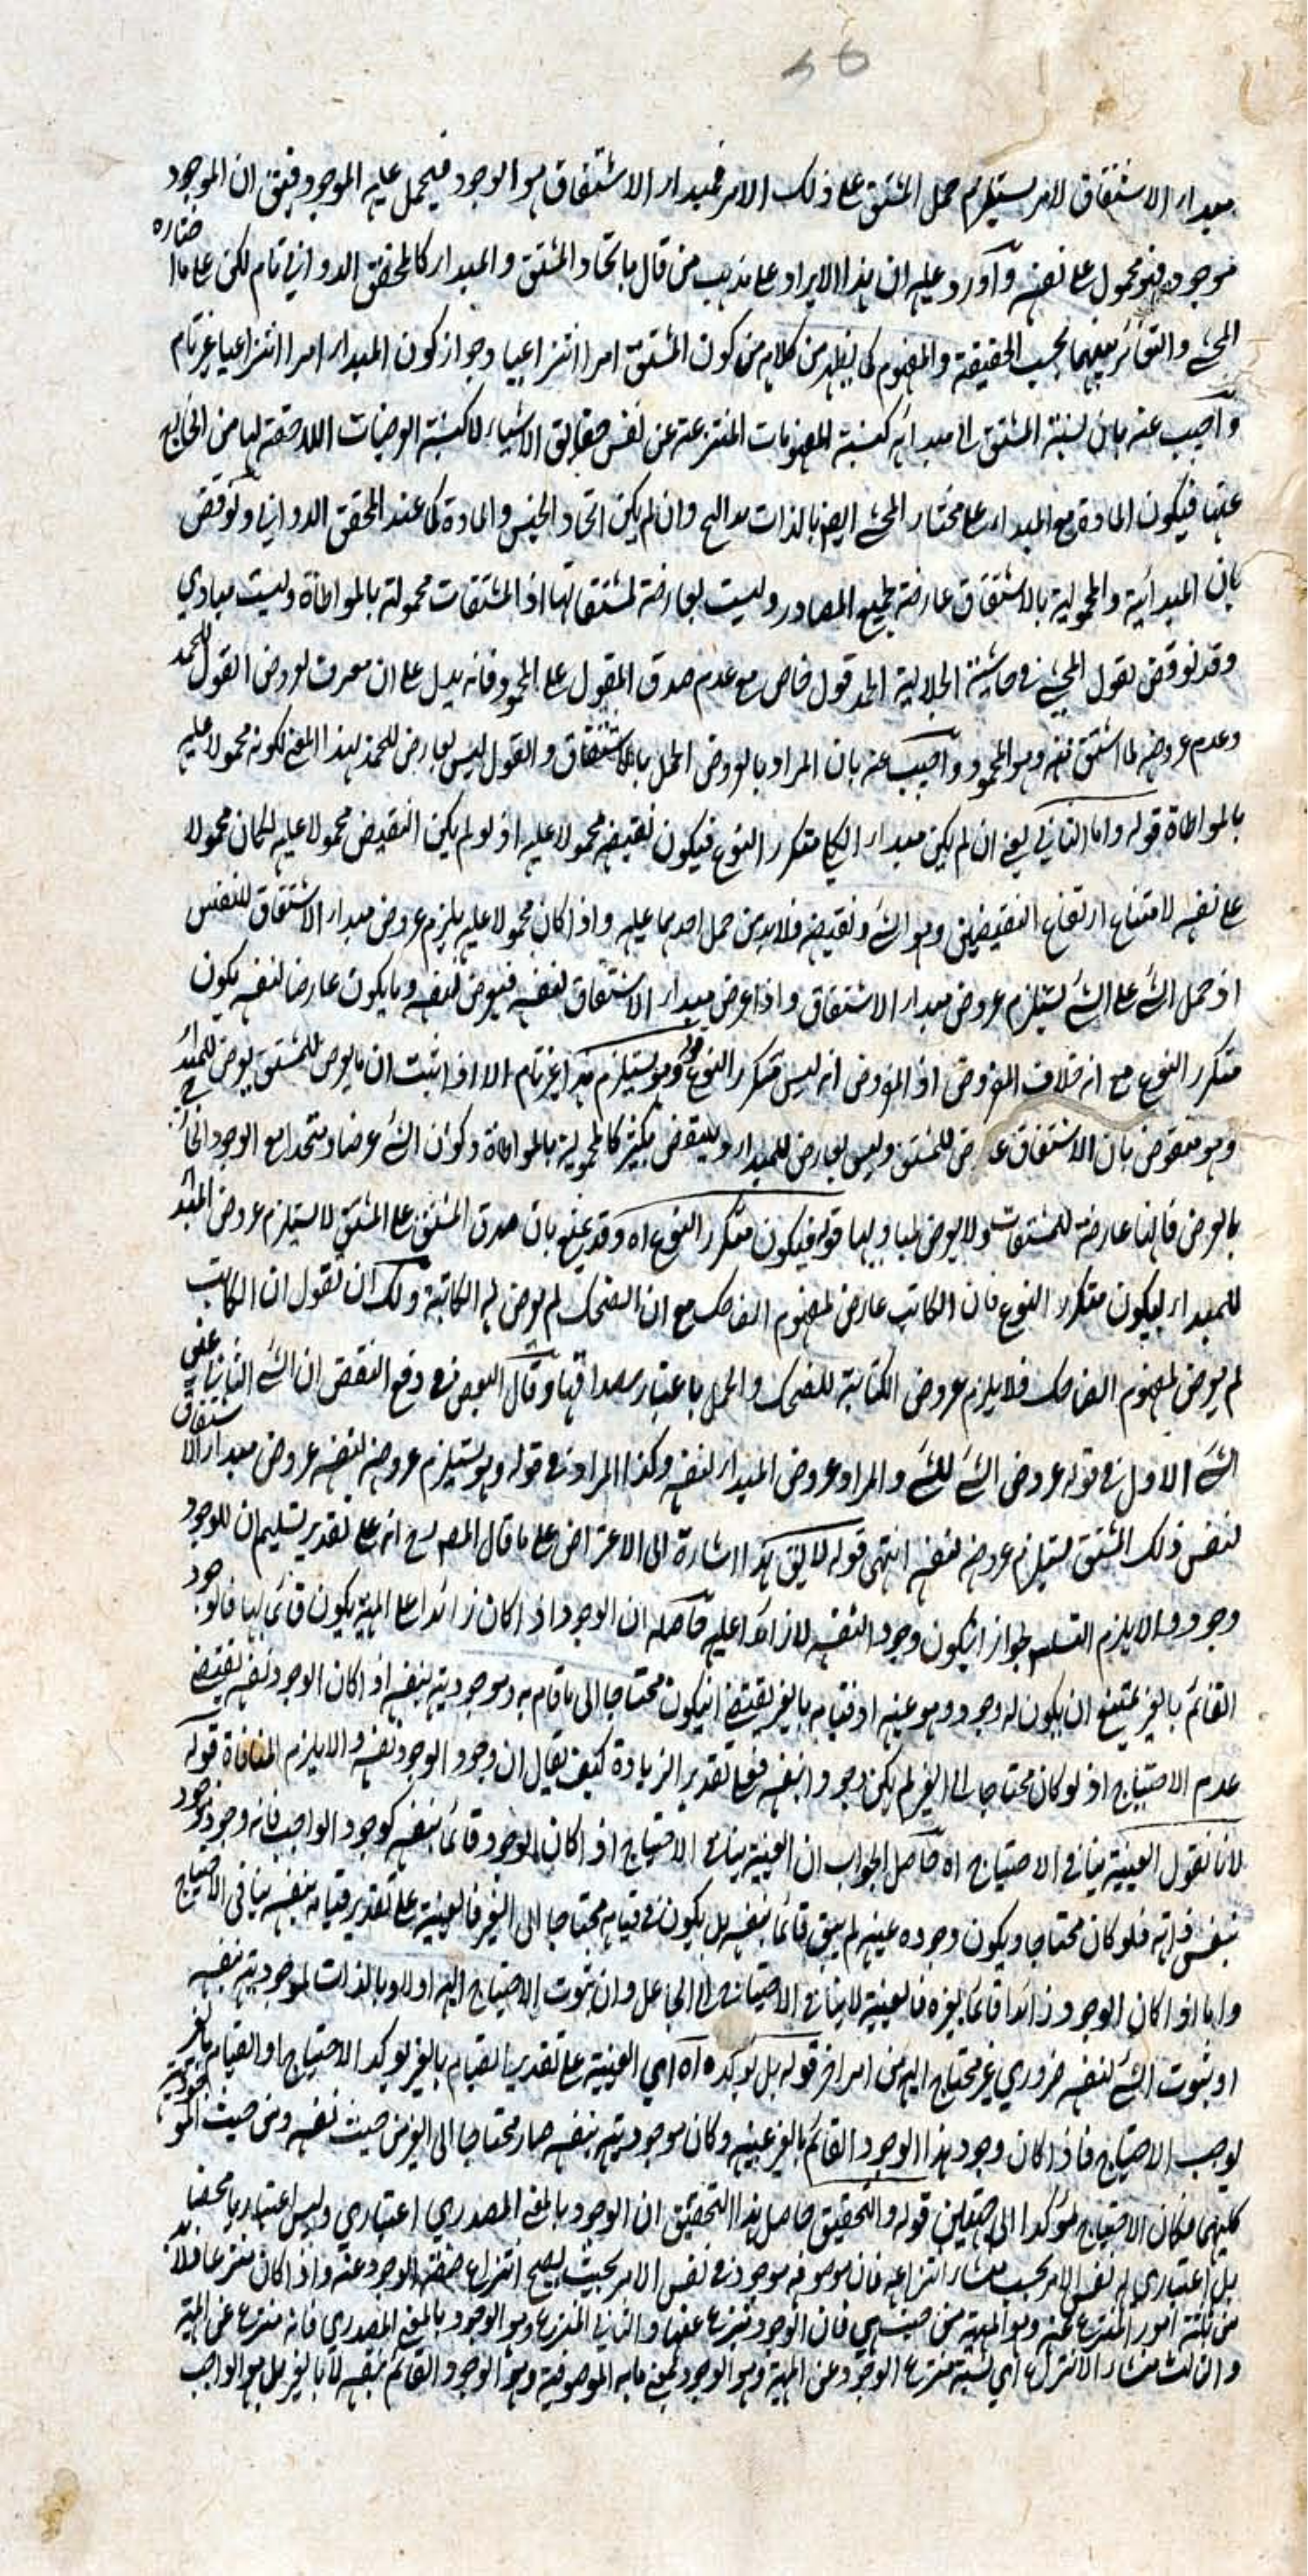 مبدء الاشتقاق لامر يستلزم حمل المشتق على ذلك الامر فمبدء الاشتقاق هو الوجود فيحمل عليه الموجود فيقق ان الموجود
موجود فهو محمول على نفسه وآورد عليه ان هذا الايراد على مذهب من قال باتحاد المشتق والمبدء كالمحقق الدواني تام لكن على ما اختاره
المحشي والتغائر بينهما بحسب الحقيقة والمفهوم كما يظهر من كلامه من كون المشتق امرا انتزاعيا وجواز كون المبدء امرا انتزاعيا غير تام
وآجيب عنه بان نسبة المشتق الى مبدائه كنسبة المفهومات المنتزعة عن نفس حقايق الاشياء لا كنسبة العرضيات اللاحقة لها من الخارج
عنها فيكون اتحاده مع المبدء على مختار المحشي ايضا بالذات وان لم يكن اتحاد الجنس والمادة كما عند المحقق الدواني ولوقض
بان المبدائية والمحمولية بالاشتقاق عارضة لجميع المصادر وليست بعارضة لمشتقاتها اذ المشتقات محمولة بالمواطاة وليست مبادي
وقد نوقض بقول المحشي في حاشية الجلالية الحمد قول خاص مع عدم صدق المقول على المحمود فانه يدل على ان معرف لعروض القول للحمد
وعدم عروضه لما اشتق منه وهو المحمود وآجيب عنه بان المراد بالعروض الحمل بالاشتقاق والقول ليس بعارض للحمد بهذا المعنى لكونه محمولا عليه
بالمواطاة قوله واما الثاني يعني ان لم يكن مبدء الكلي متكرر النوع فيكون نقيضه محمولا عليه اذ لو لم يكن النقيض محمولا عليه لكان محمولا
على نفسه لامتناع ارتفاع النقيضين وهو الشئ ونقيضه فلابد من حمل احدهما عليه واذا كان محمولا عليه يلزم عروض مبدء الاشتقاق للنفس
اذ حمل الشئ على الشئ يستلزم عروض مبدء الاشتقاق واذا عرض مبدء الاشتقاق لنفسه فيعرض لنفسه وما يكون عارضا لنفسه يكون
متكرر النوع مع انه خلاف المفروض اذ المفروض انه ليس متكرر النوع قوله وهو يستلزم هذا غير تام الا اذا اثبت ان ما يعرض للمشتق يعرض للمبدء
وهو منقوض بان الاشتقاق عارض للمشتق وليس بعارض للمبدء وينتقض بكثير كالمحمولية بالمواطاة وكون الشئ عرضا ومتحدا مع الوجود الخارجي
بالعرض فانها عارضة للمشتقات ولا يعرض لمباديها قوله فيكون متكرر النوع اه وقد يمنع بان صدق المشتق على المشتق لا يستلزم عروض المبدء
للمبدء ليكون متكرر النوع فان الكاتب عارض لمفهوم الضاحك مع ان الضحك لم يعرض له الكاتبة ولك ان تقول ان الكاتب
لم يعرض لمفهوم الضاحك فلا يلزم عروض الكتابة للضحك والحمل باعتبار مصداقها وقال البعض في دفع النقض ان الشئ الثاني عين
الشئ الاول في قوله عروض الشئ للشئ والمراد عروض المبدء لنفسه وكذا المراد في قوله وهو يستلزم عروضه لنفسه عروض مبدء الاشتقاق
لنفس ذلك المشتق يستلزم عروضه لنفسه انتهى قوله لا يق هذا اشارة الى الاعتراض على ما قال المصرح انه على تقدير تسليم ان للوجود
وجود والا يلزم التسلسل لجواز ان يكون وجود النفسه لا زائدا عليه حاصله ان الوجود اذا كان زائدا على المهية يكون قائما بها فالوجود
القائم بالغير يمتنع ان يكون له وجود وهو عينه اذ قيامه بالغير يقتضي ان يكون محتاجا الى ما قام به وموجوديته بنفسه اذا كان الوجود نفسه يقتضي
عدم الاحتياج اذ لو كان محتاجا الى الغير لم يكن وجودا بنفسه فعلى تقدير الزيادة كيف يقال ان وجود الوجود نفسه والا يلزم المنافاة قوله
لانا نقول العينية ينافي الاحتياج اه حاصل الجواب ان العينية ينافي الاحتياج اذا كان الوجود قائما بنفسه كوجود الواجب فانه وجود وموجود
بنفس ذاته فلو كان محتاجا ويكون وجوده عينه لم يبق قائما بنفسه بل يكون في قيامه محتاجا الى الغير فالعينية على تقدير قيامه بنفسه ينافي الاحتياج
واما اذا كان الوجود زائدا قائما بغيره فالعينية لا ينافي الاحتياج الى الجاعل وان ثبوت الاحتياج اليه اولا وبالذات لموجوديته بنفسه
اذ ثبوت الشئ لنفسه ضروري غير محتاج اليه من امر اخر قوله بل يؤكده اه اي العينية على تقدير القيام بالغير يؤكد الاحتياج اذ القيام بالغير
يوجب الاحتياج فاذا كان وجود هذا الوجود القائم بالغير عينه وكان موجوديته بنفسه صار محتاجا الى الغير من حيث نفسه ومن حيث الموجودية
كليهما فكان الاحتياج مؤكدا الى قوله والتحقيق حاصل هذا التحقيق ان الوجود بالمعنى المصدري اعتباري وليس اعتباريا محضا
بل اعتباري له نفس الامر بحسب منشاء انتزاعه فان موصوفه موجود في نفس الامر بحيث يصح انتزاع صفة الوجود عنه واذا كان منتزعا فلابد
من ثلثة امور المنتزع عنه وهو المهية من حيث هي فان الوجود ينتزع عنها والثاني المنتزع وهو الوجود بالمعنى المصدري فانه منتزع عن المهية
والثالث منشاء الانتزاع اي نسبة منتزع الوجود عن المهية وهو الوجود بمعنى ما به الموصوفية وهو الوجود القائم بنفسه لا بالغير بل هو الواجب